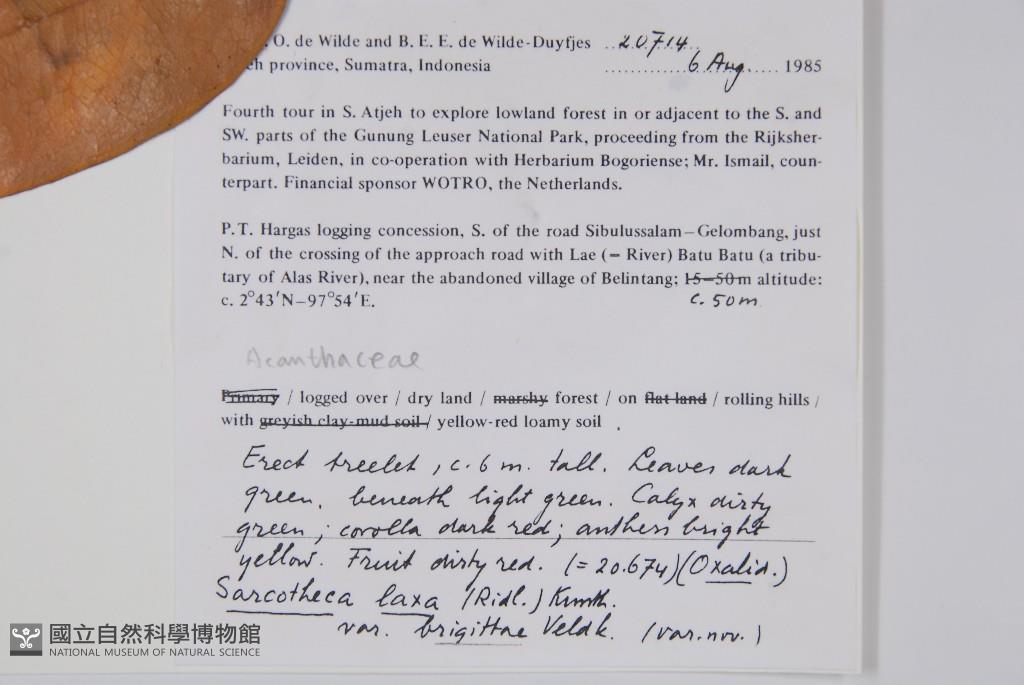 O. de Wilde and B. E. E. de Wilde-Duyfjes ..20714..
province, Sumatra, Indonesia ............6 Aug...... 1985
Fourth tour in S. Atjeh to explore lowland forest in or adjacent to the S. and
SW. parts of the Gunung Leuser National Park, proceeding from the Rijksher-
barium, Leiden, in co-operation with Herbarium Bogoriense; Mr. Ismail, coun-
terpart. Financial sponsor WOTRO, the Netherlands.
P.T. Hargas logging concession, S. of the road Sibulussalam–Gelombang, just
N. of the crossing of the approach road with Lae (= River) Batu Batu (a tribu-
tary of Alas River), near the abandoned village of Belintang; 15–50m altitude:
c. 2°43′N–97°54′E. c. 50m
Acanthaceae
Primary / logged over / dry land / marshy forest / on flat land / rolling hills /
with greyish clay-mud soil / yellow-red loamy soil .
Erect treelet, c. 6 m. tall. Leaves dark
green, beneath light green. Calyx dirty
green; corolla dark red; anthers bright
yellow. Fruit dirty red. (= 20.674) (Oxalid.)
Sarcotheca laxa (Ridl.) Knuth.
var. brigittae Veldk. (var. nov.)
國立自然科學博物館
NATIONAL MUSEUM OF NATURAL SCIENCE